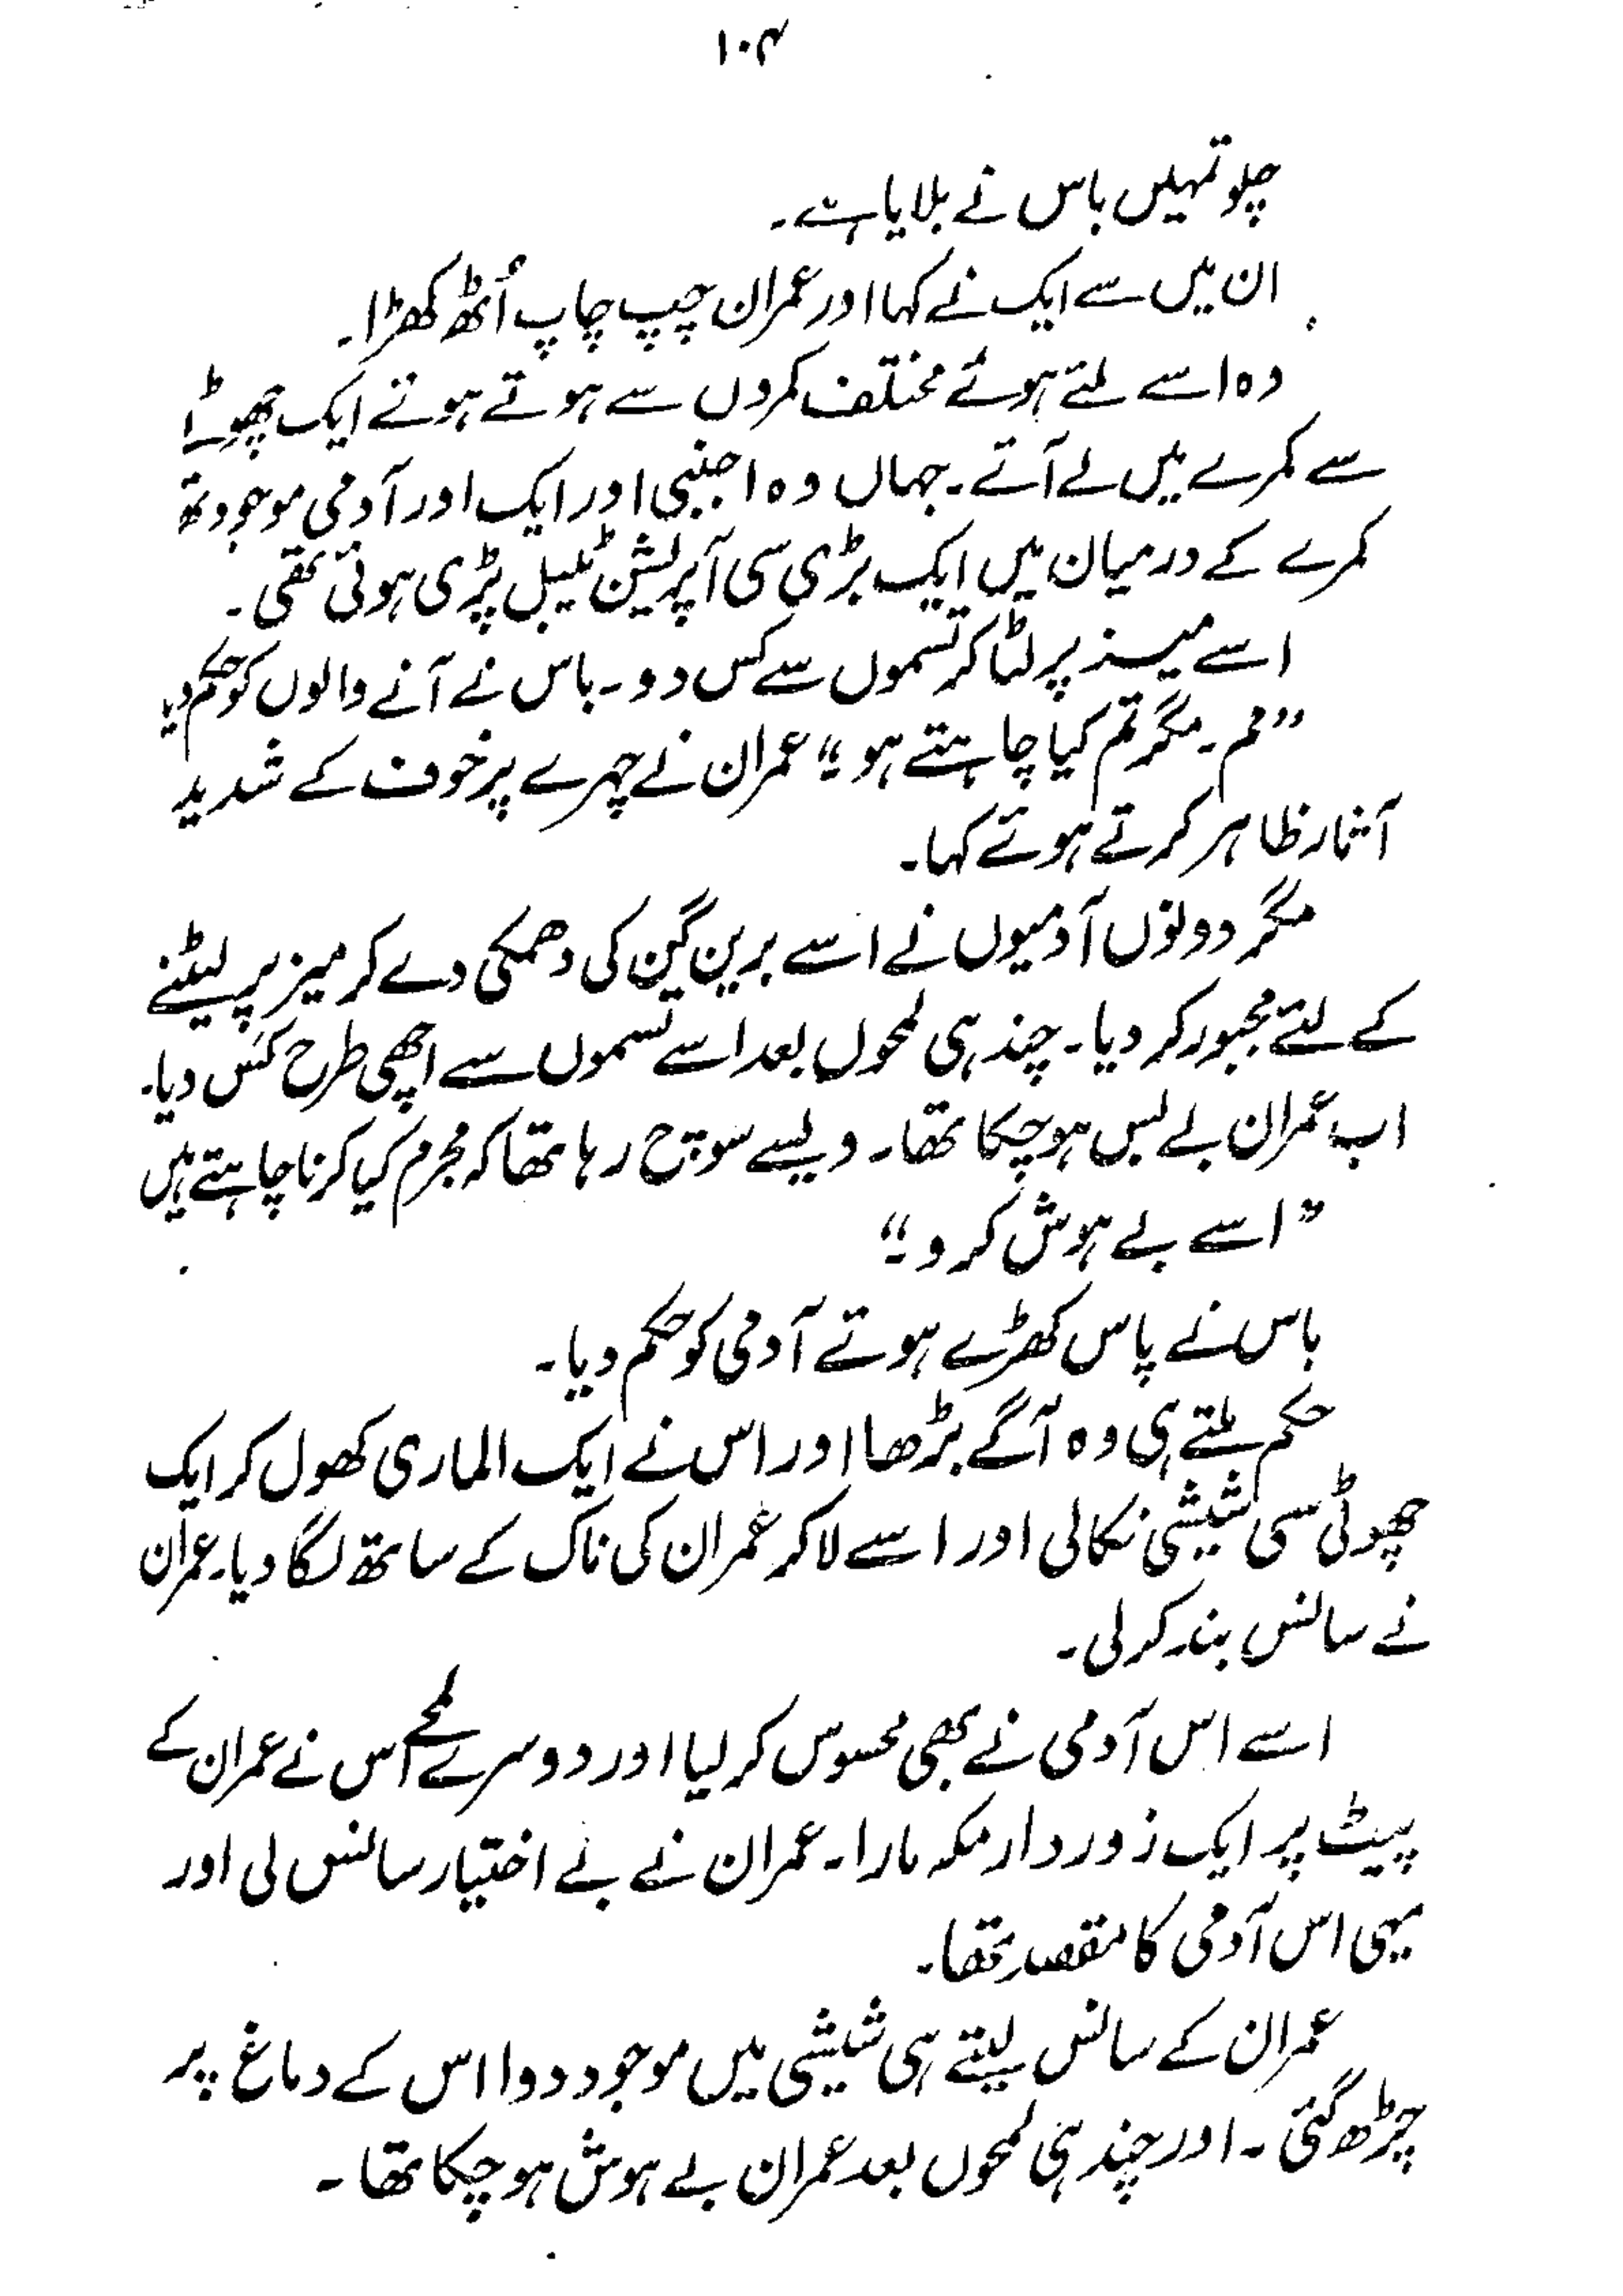 ۱۰۴
چلو تمہیں باس نے بلایا ہے۔
ان میں سے ایک نے کہا اور عمران چپ چاپ اُٹھ کھڑا۔
وہ اسے لئے ہوئے مختلف کمروں سے ہوتے ہوتے ایک چھوٹے
سے کمرے میں لے آتے۔ جہاں وہ اجنبی اور ایک اور آدمی موجود تھ
کمرے کے درمیان میں ایک بڑی سی آپریشن ٹیبل پڑی ہوئی تھی۔
اسے میز پر لٹا کر تسموں سے کس دو۔ باس نے آنے والوں کو حکم دیا
”مم۔ مگر تم کیا چاہتے ہو؟“ عمران نے چہرے پر خوف کے شدید
آثار ظاہر کرتے ہوئے کہا۔
مگر دونوں آدمیوں نے اسے برین گن کی دھمکی دے کر میز پر لیٹنے
کے لئے مجبور کر دیا۔ چند ہی لمحوں بعد اسے تسموں سے اچھی طرح کس دیا۔
اب عمران بے بس ہو چکا تھا۔ ویسے سوچ رہا تھا کہ مجرم کیا کرنا چاہتے ہیں
”اسے بے ہوش کرو۔“
باس نے پاس کھڑے ہوتے آدمی کو حکم دیا۔
حکم ملتے ہی وہ آگے بڑھا اور اس نے ایک الماری کھول کر ایک
چھوٹی سی شیشی نکالی اور اسے لا کر عمران کی ناک کے ساتھ لگا دیا۔ عمران
نے سانس بند کر لی۔
اسے اس آدمی نے بھی محسوس کر لیا اور دوسرے لمحے اس نے عمران کے
پیٹ پر ایک زور دار مکہ مارا۔ عمران نے بے اختیار سانس لی اور
یہی اس آدمی کا مقصد تھا۔
عمران کے سانس لیتے ہی شیشی میں موجود دوا اس کے دماغ پر
چڑھ گئی۔ اور چند ہی لمحوں بعد عمران بے ہوش ہو چکا تھا۔